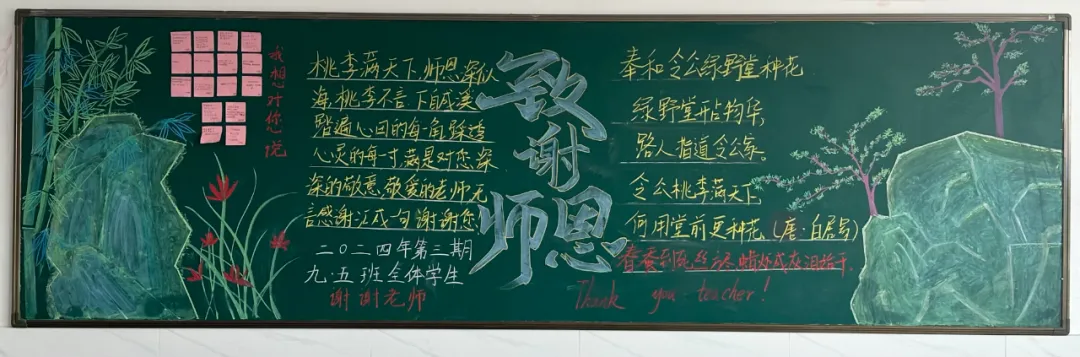 我想对你说
桃李满天下,师恩深似
海,桃李不言,下自成溪
踏遍心田的每一角,踩透
心灵的每一寸,满是对您深
深的敬意,敬爱的老师,无
言感谢,汇成一句,谢谢您
二〇二四年第三期
九·五班全体学生
谢谢老师
致
谢
师恩
奉和令公绿野堂种花
绿野堂开占物华,
路人指道令公家。
令公桃李满天下,
何用堂前更种花。(唐·白居易)
春蚕到死丝方尽,蜡炬成灰泪始干。
Thank you teacher!